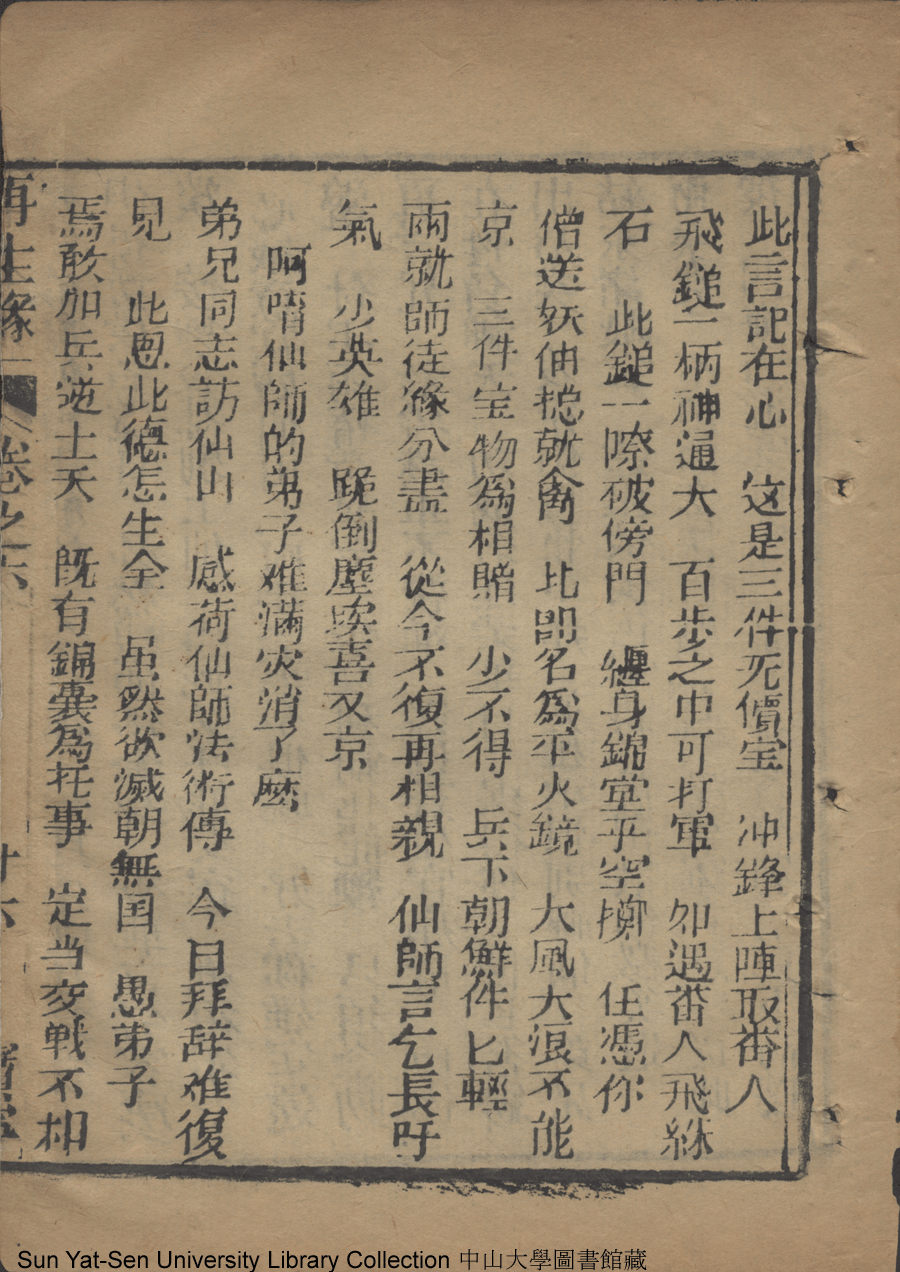 此言記在心　这是三件无價宝　冲鋒上陣取畨人
飛鎚一柄神通大　百步之中可打軍　如遇畨人飛絲
石　此鎚一際破傍門　纏身錦堂平空擲　任憑你
僧送妖伷摠就禽　比即名為平火鏡　大風大浪不能
京　三件宝物為相贈　少不得　兵下朝鮮件匕輕
兩就師徒緣分盡　從今不復再相親　仙師言乞長吁
氣　少英雄　跪倒塵埃喜又京
呵唷仙師的弟子难滿灾消了麽
弟兄同志訪仙山　感荷仙師法術傳　今日拜辞难復
見　此恩此德怎生全　虽然欲滅朝無国　愚弟子
焉敢加兵逆士天　既有錦囊為托事　定当交戦不相
再生緣　卷之六　十六
Sun Yat-Sen University Library Collection 中山大學圖書館藏